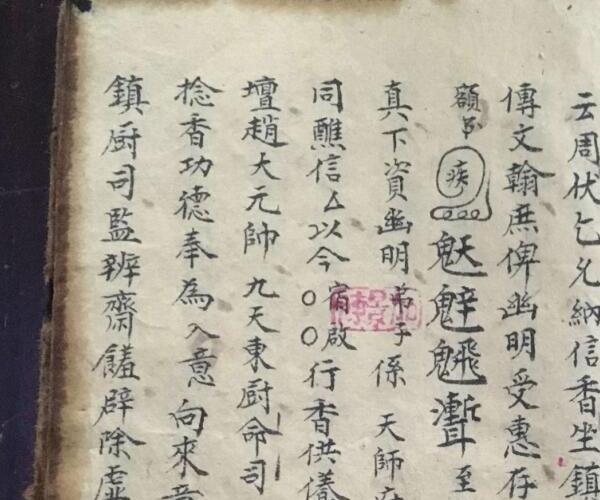 云周伏乞允納信香坐鎮
傳文翰庶俾幽明受惠存
額吊疾至
真下資幽明弟子係天師
同醮信厶以今〇〇宿啟行香供儀
壇趙大元帥九天東厨命司
捻香功德奉為入意向來
鎮厨司監辨齋饈辟除